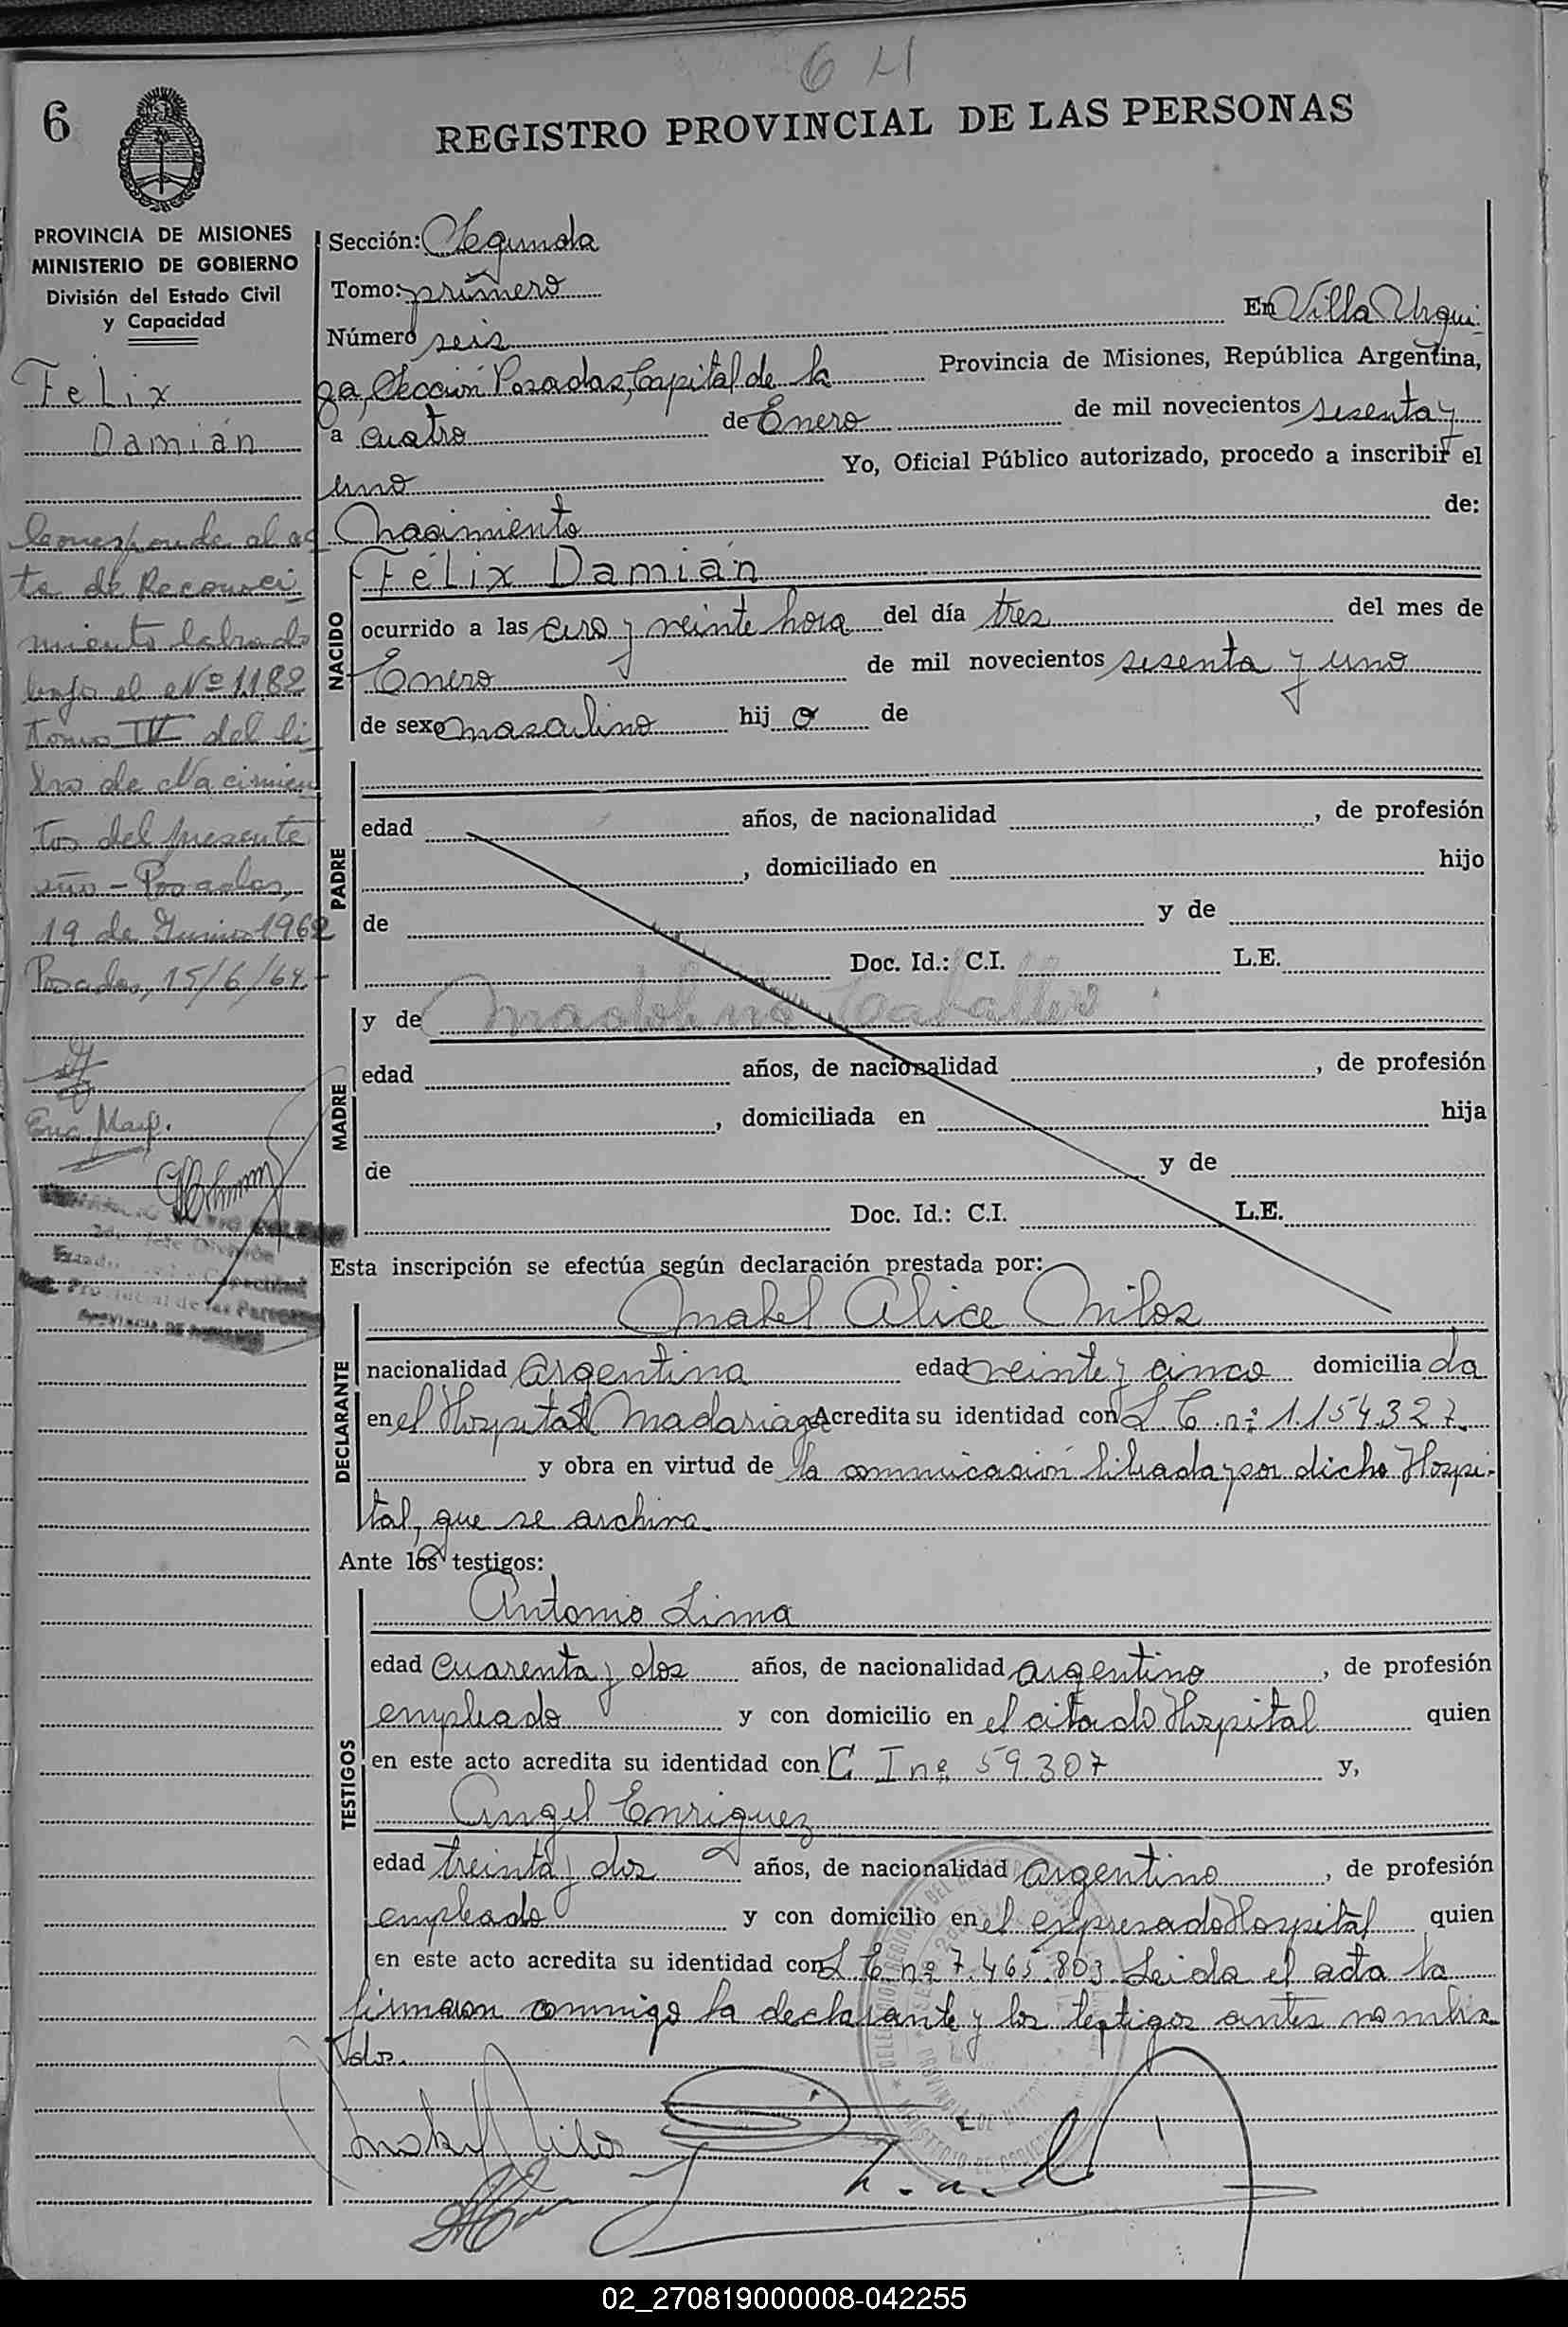 6 4
6
REGISTRO PROVINCIAL DE LAS PERSONAS
PROVINCIA DE MISIONES
MINISTERIO DE GOBIERNO
División del Estado Civil
y Capacidad
Felix
Damián
Corresponde al ac
ta de Reconoci
miento labrado
bajo el Nº 1182
Tomo IV del li
bro de Nacimien
tos del presente
año - Posadas,
19 de Junio 1962
Posadas, 15/6/64.-
Enc. Mayp.
Sección: Segunda
Tomo: primero
Número seis En Villa Urqui
za, Sección Posadas, Capital de la Provincia de Misiones, República Argentina,
a cuatro de Enero de mil novecientos sesenta y
uno Yo, Oficial Público autorizado, procedo a inscribir el
Nacimiento de:
NACIDO
Félix Damián
ocurrido a las cero y veinte hora del día tres del mes de
Enero de mil novecientos sesenta y uno
de sexo masculino hij o de
PADRE
edad años, de nacionalidad , de profesión
, domiciliado en hijo
de y de
Doc. Id.: C.I. L.E.
MADRE
y de Caballero
edad años, de nacionalidad , de profesión
, domiciliada en hija
de y de
Doc. Id.: C.I. L.E.
Esta inscripción se efectúa según declaración prestada por:
DECLARANTE
Mabel Alice Milos
nacionalidad Argentina edad veinte y cinco domicilia da
en el Hospital Madariaga Acredita su identidad con L C. nº 1.154.327
y obra en virtud de la comunicación librada por dicho Hospi-
tal, que se archiva.
Ante los testigos:
TESTIGOS
Antonio Lima
edad cuarenta y dos años, de nacionalidad argentino , de profesión
empleado y con domicilio en el citado Hospital quien
en este acto acredita su identidad con C I nº 59.307 y,
Angel Enriquez
edad treinta y dos años, de nacionalidad argentino , de profesión
empleado y con domicilio en el expresado Hospital quien
en este acto acredita su identidad con L E. nº 7.465.803. Leida el acta la
firmaron conmigo la declarante y los testigos antes nombra
dos.
Mabel Milos
02_270819000008-042255